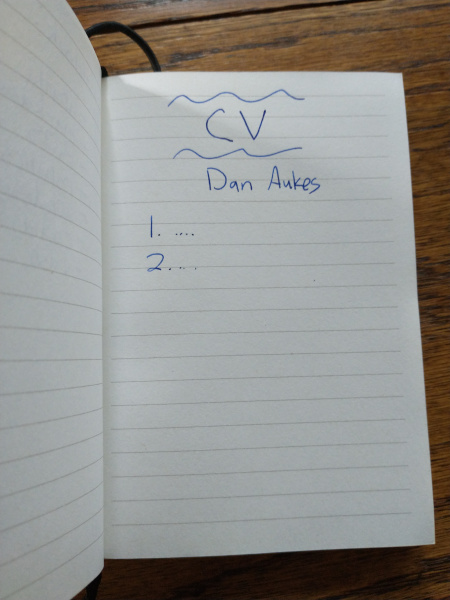 CV
Dan Aukes
1. ....
2. ...